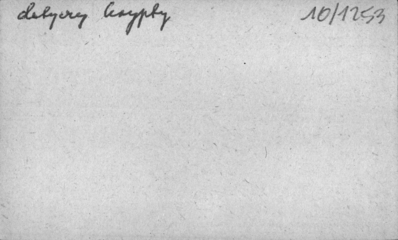 dotyczy krypty 10/1253